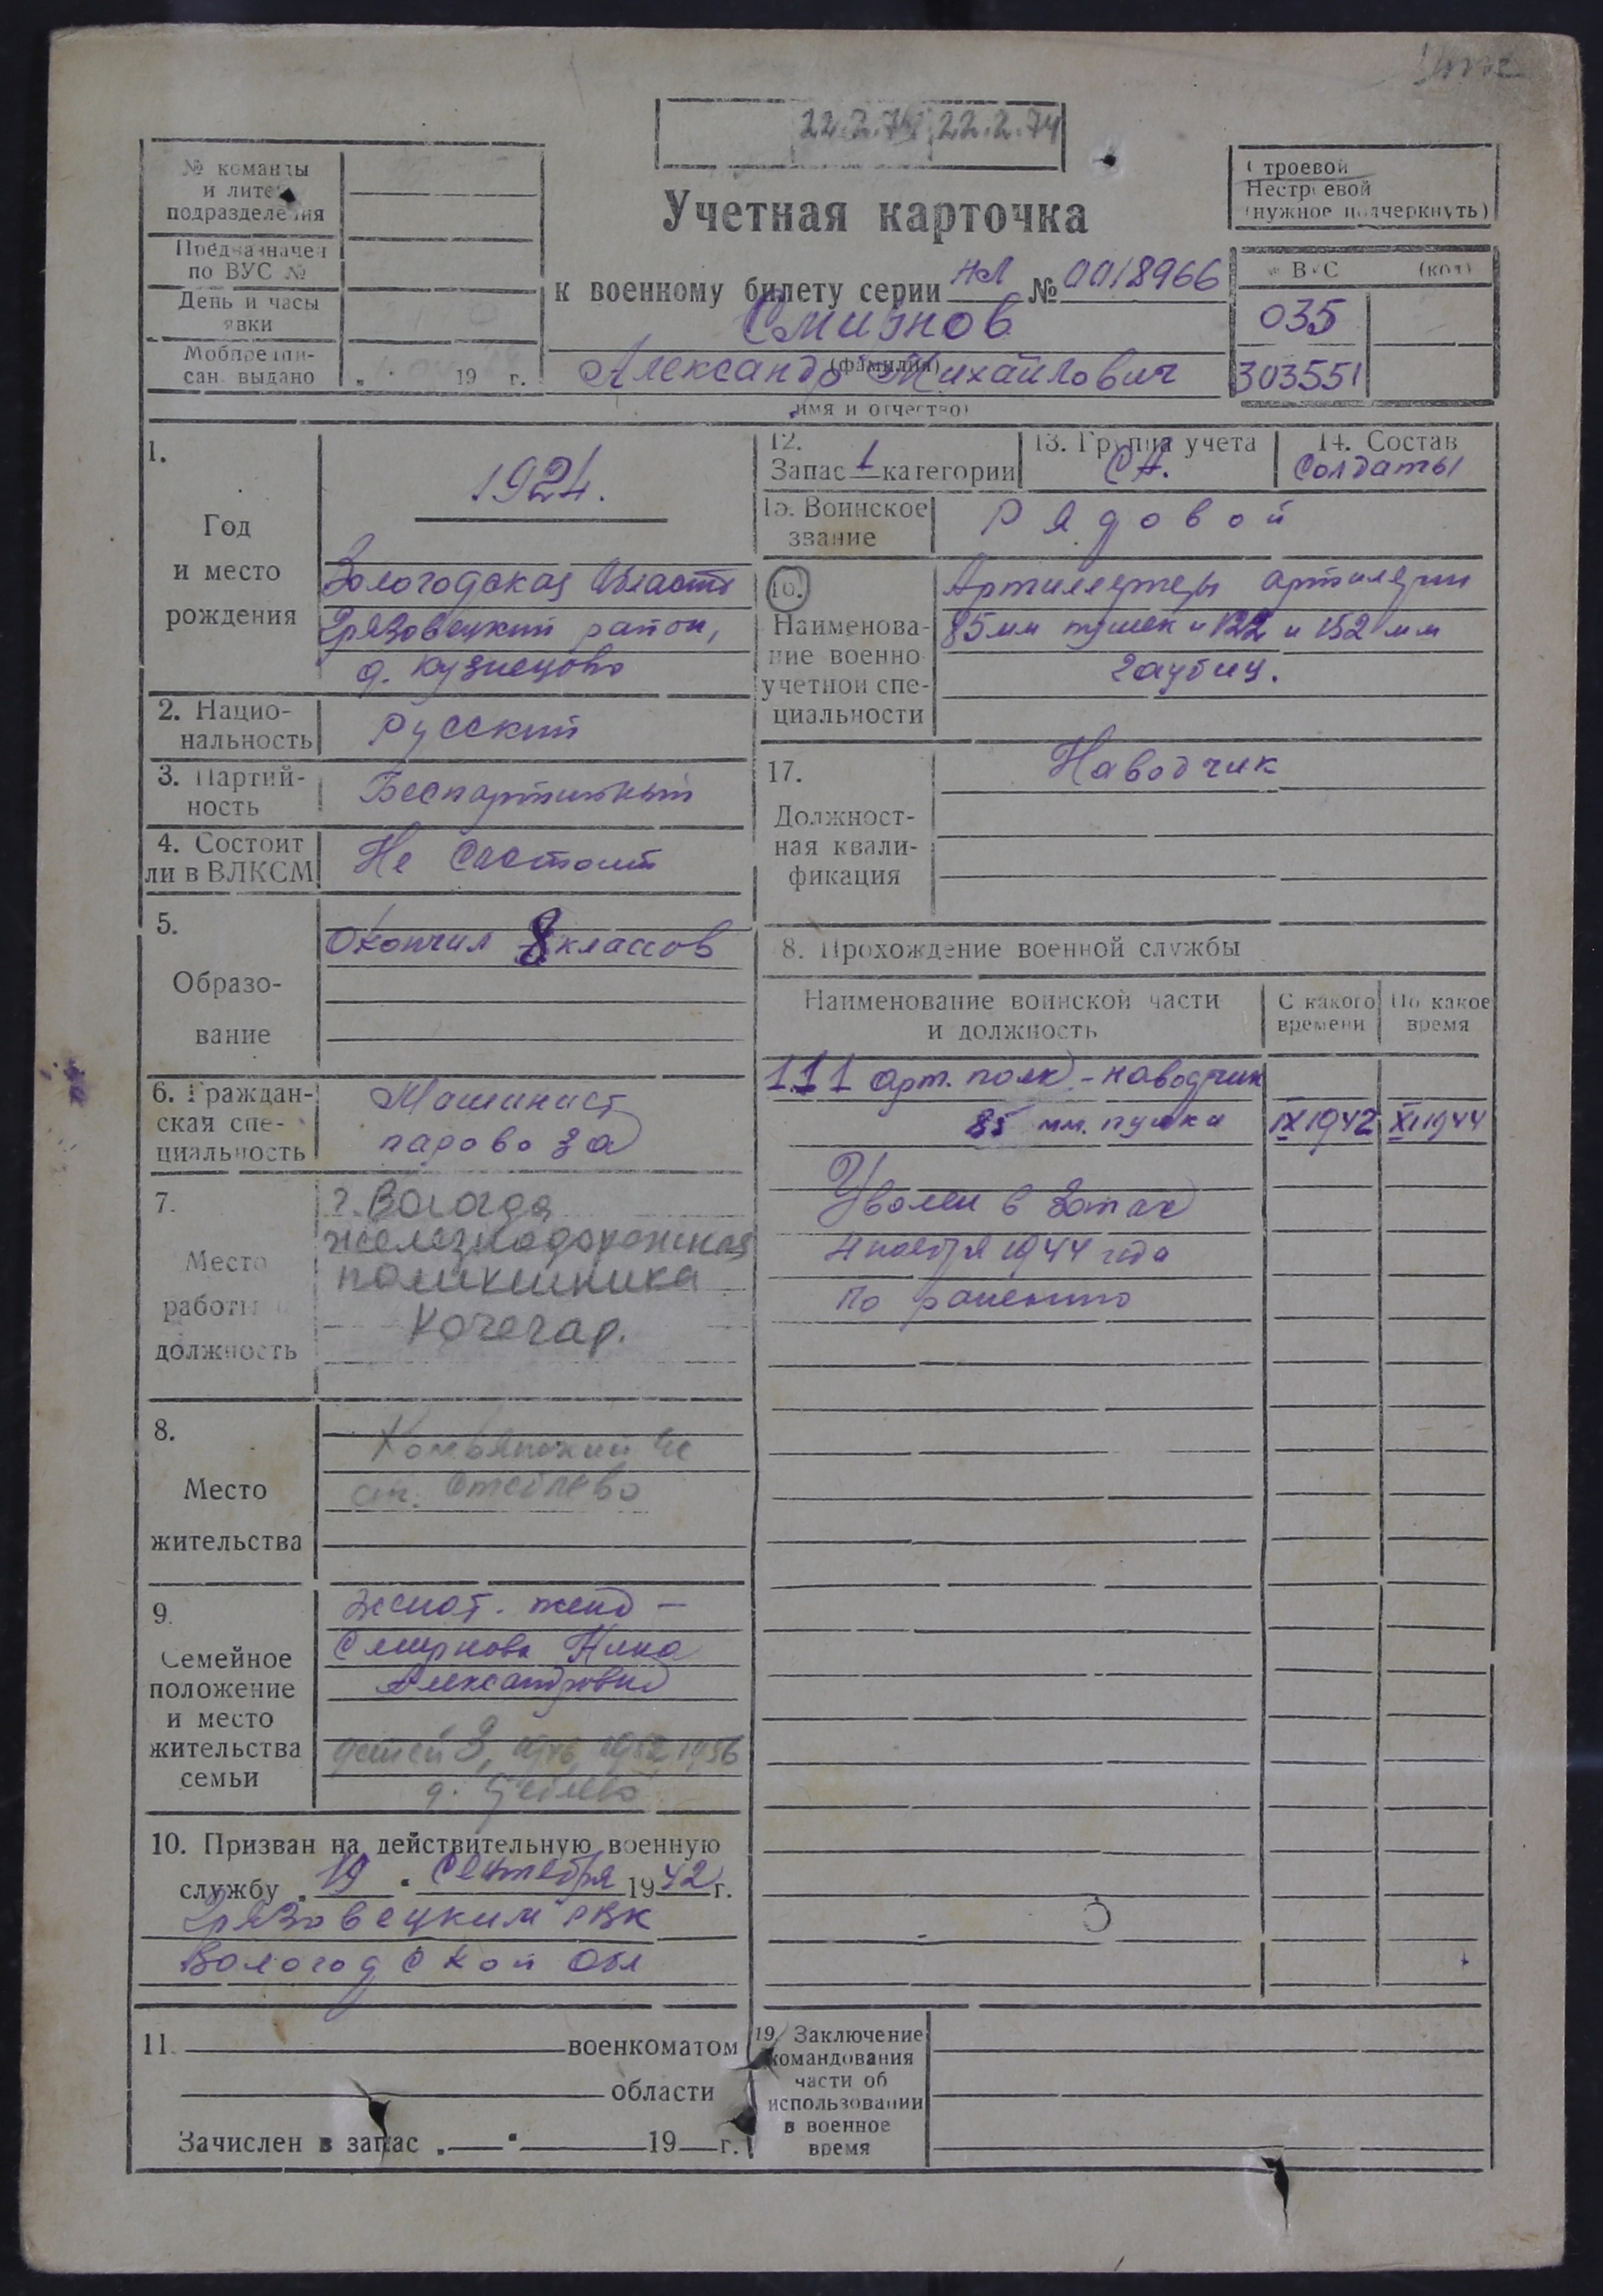 22.2.74 22.2.74
№ команды
и литер
подразделения
Предназначен
по ВУС №
День и часы
явки
Мобпредпи-
сан. выдано
19 г.
Строевой
Нестроевой
(нужное подчеркнуть)
Учетная карточка
к военному билету серии НЛ № 0018966
Смирнов
(фамилия)
Александр Михайлович
(имя и отчество)
№ ВУС (код)
035
303551
1.
Год
и место
рождения
1924.
Вологодская область
Грязовецкий район,
д. Кузнецово
2. Нацио-
нальность
Русский
3. Партий-
ность
Беспартийный
4. Состоит
ли в ВЛКСМ
Не состоит
5.
Образо-
вание
Окончил 8 классов
6. Граждан-
ская спе-
циальность
Машинист
паровоза
7.
Место
работы и
должность
г. Вологда
железнодорожная
поликлиника
Кочегар.
8.
Место
жительства
ст.
9.
Семейное
положение
и место
жительства
семьи
женат. жена –
Смирнова Нина
Александровна
детей 3, 1946, 1952, 1956
д.
10. Призван на действительную военную
службу „19" сентября 1942 г.
Грязовецким РВК
Вологодской обл
11. военкоматом
области
Зачислен в запас „ " 19 г.
12.
Запас 1 категории
13. Группа учета
СА.
14. Состав
Солдаты
15. Воинское
звание
Рядовой
16.
Наименова-
ние военно-
учетной спе-
циальности
Артиллеристы артилерии
85 мм пушек и 122 и 152 мм
гаубиц.
17.
Должност-
ная квали-
фикация
Наводчик
18. Прохождение военной службы
Наименование воинской части
и должность
С какого
времени
По какое
время
111 арт. полк - наводчик
85 мм. пушки IX 1942 XI 1944
Уволен в запас
4 ноября 1944 года
по ранению
19. Заключение
командования
части об
использовании
в военное
время